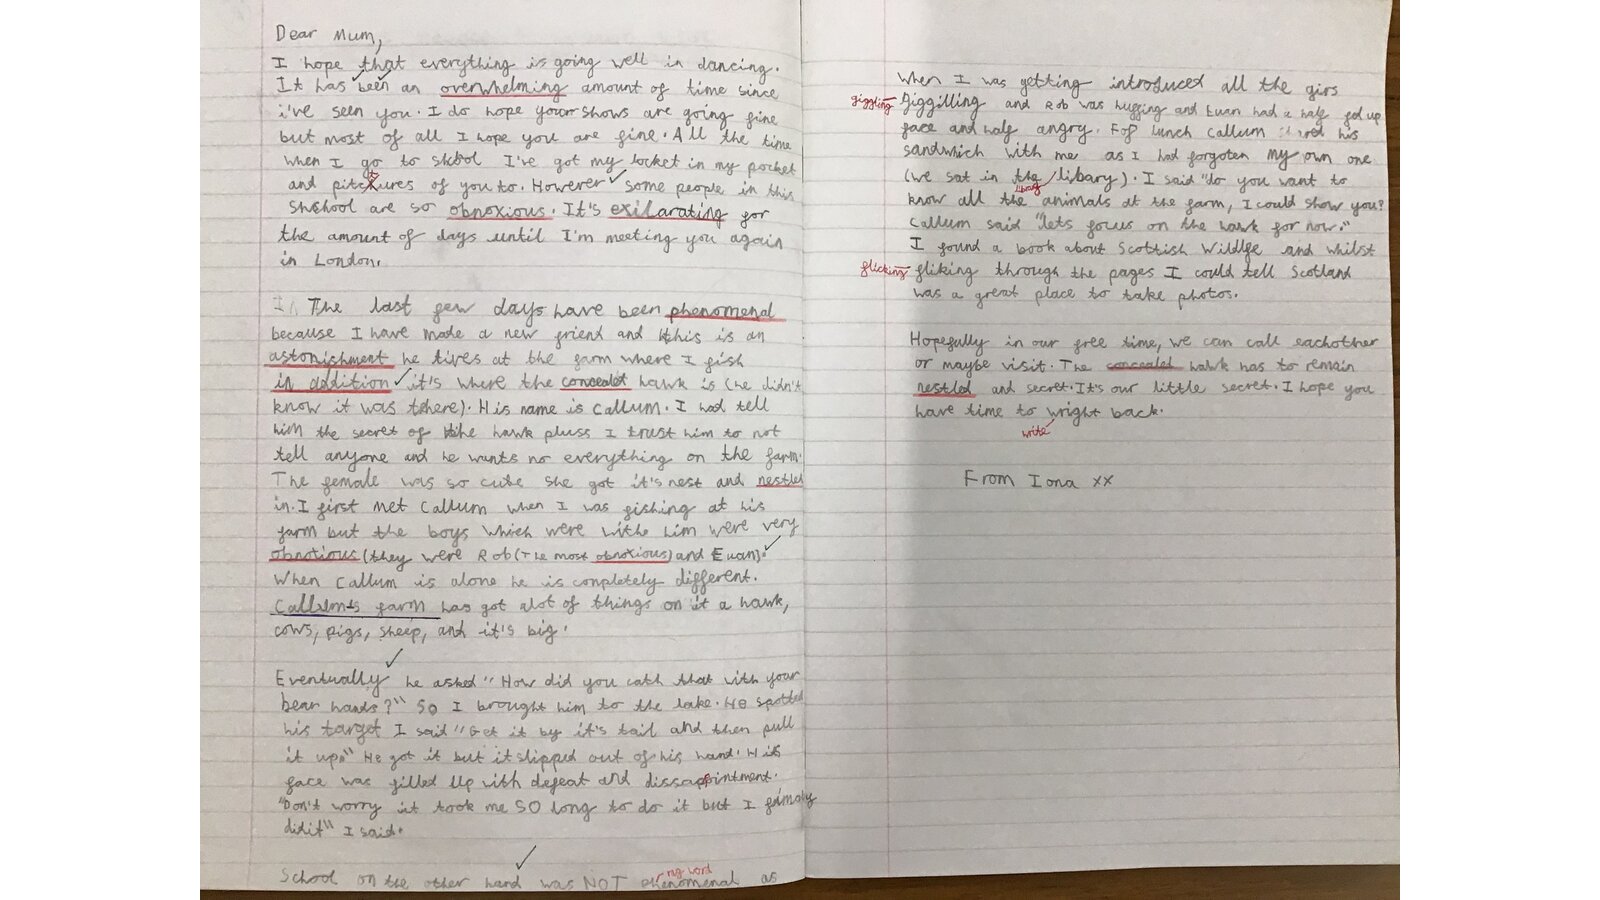 Dear Mum,
I hope that everything is going well in dancing.
It has been an overwhelming amount of time since
i've seen you. I do hope your shows are going fine
but most of all I hope you are fine. All the time
when I go to skool I've got my locket in my pocket
and pitctures of you to. However some people in this
Shchool are so obnoxious. It's exilarating for
the amount of days until I'm meeting you again
in London.
In The last few days have been phenomenal
because I have made a new friend and this is an
astonishment he lives at the farm where I fish
in addition it's where the concealet hawk is (he didn't
know it was there). His name is Callum. I had tell
him the secret of the hawk pluss I trust him to not
tell anyone and he wants no everything on the farm.
The female was so cute she got it's nest and nestled
in. I first met Callum when I was fishing at his
farm but the boys which were withe him were very
obnotious (they were Rob (The most obnoxious) and Euan).
When Callum is alone he is conpletely different.
Callum's farm has got alot of things on it a hawk,
cows, pigs, sheep, and it's big.
Eventually he asked "How did you cath that with your
bear hands?" So I brought him to the lake. He spotted
his target I said "Get it by it's tail and then pull
it up" He got it but it slipped out of his hand. His
face was filled up with defeat and dissappintment.
"Don't worry it took me SO long to do it but I finaly
didit" I said.
mg word
School on the other hand was NOT phenomenal as
when I was getting introduced all the girs
giggling Giggilling and Rob was huffing and Euan had a half fed up
face and half angry. For lunch Callum shared his
sandwhich with me as I had forgoten my own one
(we sat in the libary). I said "do you want to
library
know all the animals at the farm, I could show you?
Callum said "lets focus on the hawk for now."
I found a book about Scottish Wildlfe and whilst
flicking fliking through the pages I could tell Scotland
was a great place to take photos.
Hopefully in our free time, we can call eachother
or maybe visit. The concealed hawk has to remain
nestled and secret. It's our little secret. I hope you
have time to wright back.
write
From Iona xx